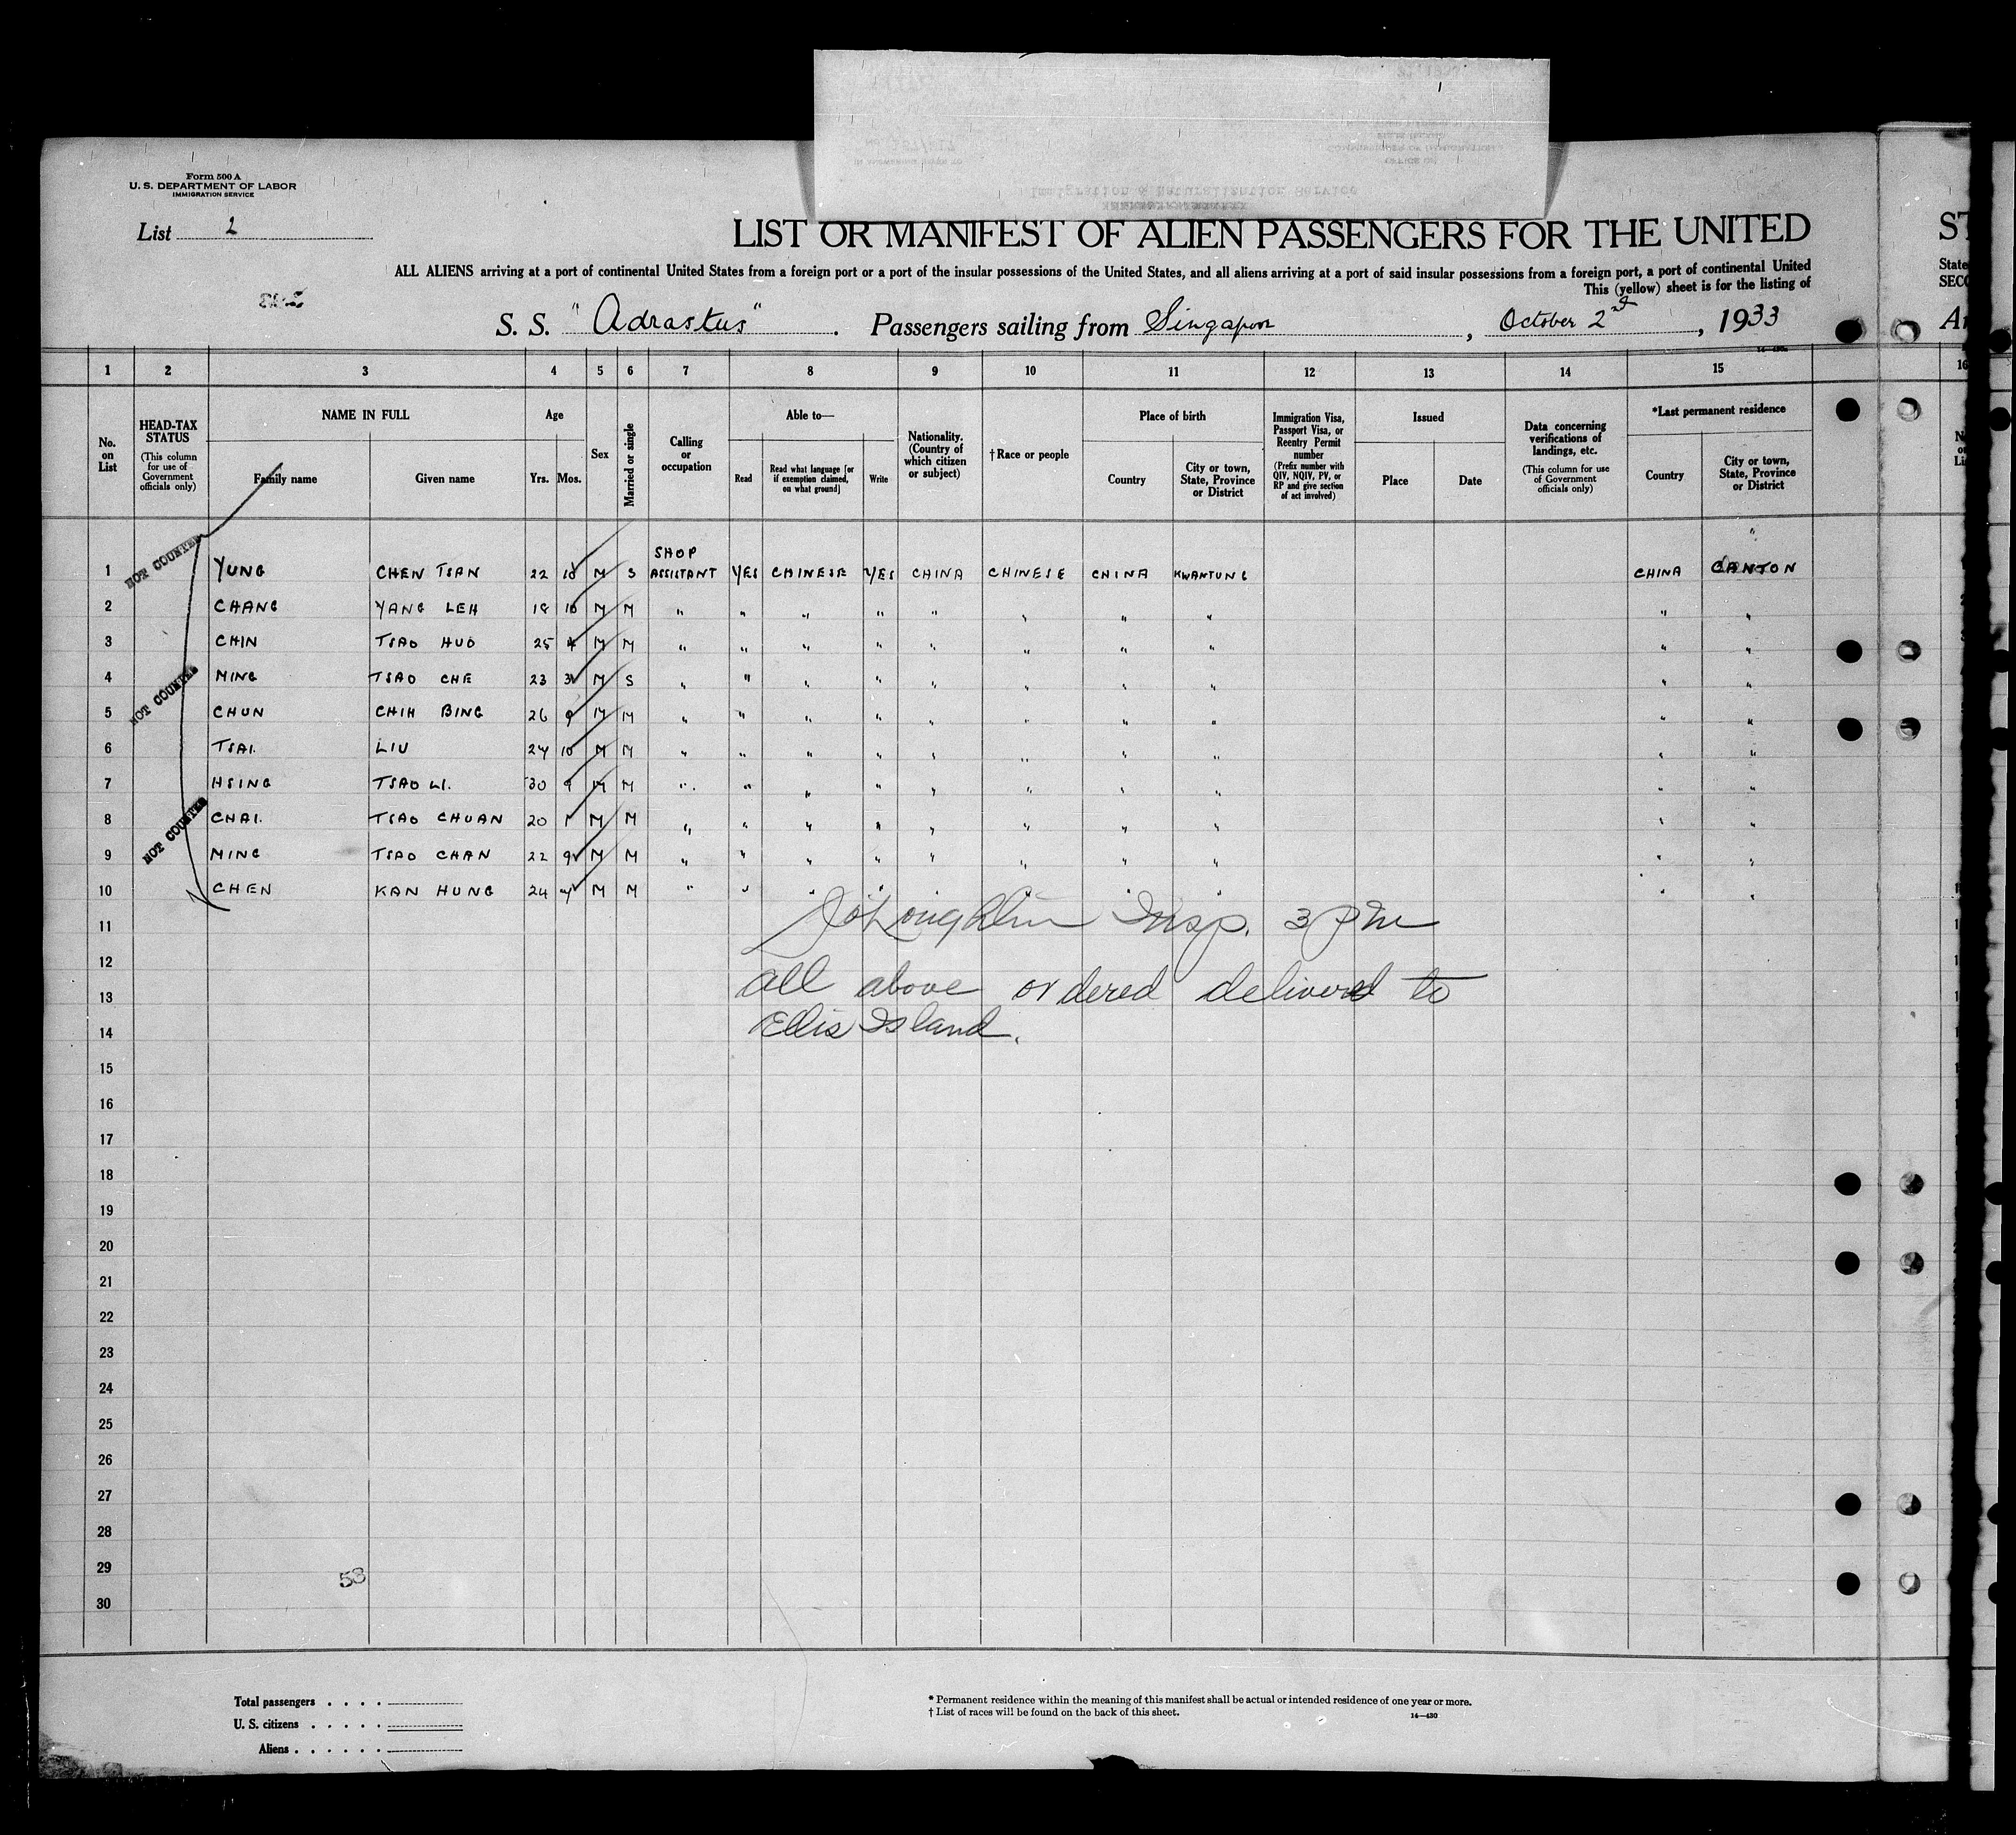 Form 500 A
U. S. DEPARTMENT OF LABOR
IMMIGRATION SERVICE
List 2
LIST OR MANIFEST OF ALIEN PASSENGERS FOR THE UNITED
ALL ALIENS arriving at a port of continental United States from a foreign port or a port of the insular possessions of the United States, and all aliens arriving at a port of said insular possessions from a foreign port, a port of continental United
This (yellow) sheet is for the listing of
S. S. "Adrastus". Passengers sailing from Singapore, October 2nd, 1933
1 2 3 4 5 6 7 8 9 10 11 12 13 14 15
No. on List
HEAD-TAX STATUS (This column for use of Government officials only)
NAME IN FULL Family name Given name
Age Yrs. Mos.
Sex
Married or single
Calling or occupation
Able to— Read Read what language [or if exemption claimed, on what ground] Write
Nationality. (Country of which citizen or subject)
†Race or people
Place of birth Country City or town, State, Province or District
Immigration Visa, Passport Visa, or Reentry Permit number (Prefix number with QIV, NQIV, PV, or RP and give section of act involved)
Issued Place Date
Data concerning verifications of landings, etc. (This column for use of Government officials only)
*Last permanent residence Country City or town, State, Province or District
NOT COUNTED
1 YUNG CHEN TSAN 22 10 M S SHOP ASSISTANT YES CHINESE YES CHINA CHINESE CHINA KWANTUNG CHINA CANTON
2 CHANG YANG LEH 18 10 M M " " " " " " " " " "
3 CHIN TSAO HUO 25 4 M M " " " " " " " " " "
NOT COUNTED
4 MING TSAO CHE 23 3 M S " " " " " " " " " "
5 CHUN CHIH BING 26 9 M M " " " " " " " " " "
6 TSAI. LIU 24 10 M M " " " " " " " " " "
7 HSING TSAO LI. 30 9 M M " " " " " " " " " "
NOT COUNTED
8 CHAI. TSAO CHUAN 20 1 M M " " " " " " " " " "
9 MING TSAO CHAN 22 9 M M " " " " " " " " " "
10 CHEN KAN HUNG 24 M M " " " " " " " " " "
11 J O'Loughlin Insp. 3 PM
12
13 all above ordered delivered to
14 Ellis Island.
15
16
17
18
19
20
21
22
23
24
25
26
27
28
29
58
30
Total passengers
U. S. citizens
Aliens
* Permanent residence within the meaning of this manifest shall be actual or intended residence of one year or more.
† List of races will be found on the back of this sheet.
14—430